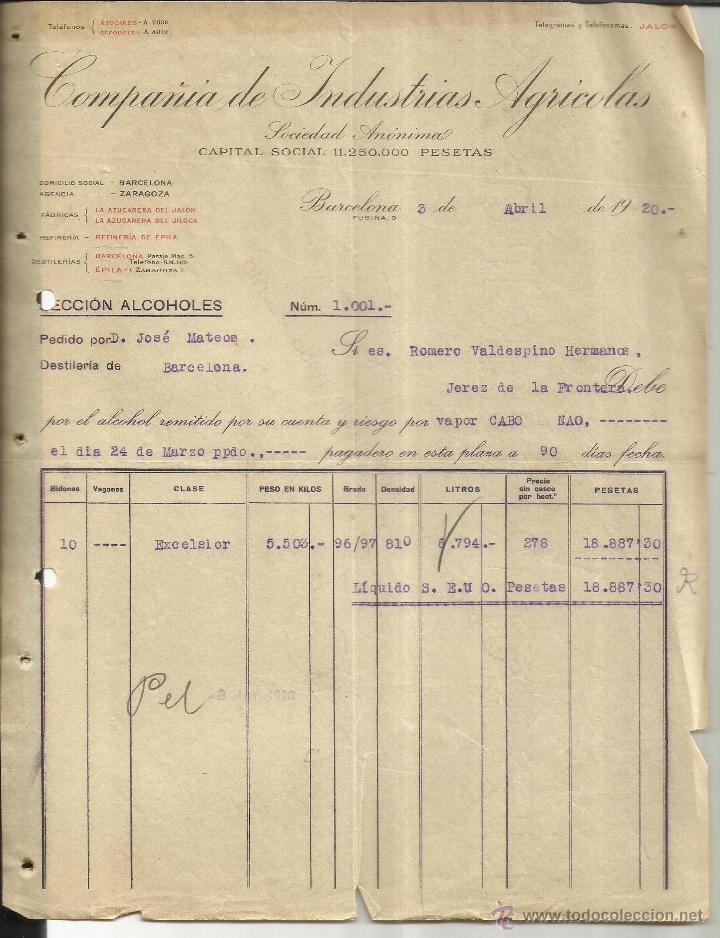 Teléfonos { AZÚCARES - A. 2636
ALCOHOLES - A. 4812
Telegramas y Telefonemas. JALON
Compañía de Industrias Agrícolas
Sociedad Anónima
CAPITAL SOCIAL 11.250,000 PESETAS
DOMICILIO SOCIAL - BARCELONA
AGENCIA - ZARAGOZA
FÁBRICAS { LA AZUCARERA DEL JALÓN
LA AZUCARERA DEL JILOCA
REFINERÍA - REFINERÍA DE ÉPILA
DESTILERÍAS { BARCELONA Pasaje Mas, 5.
Teléfono S.M. 162
ÉPILA - (ZARAGOZA)
Barcelona 3 de Abril de 1920.-
FUSINA, 9
SECCIÓN ALCOHOLES Núm. 1.001.-
Pedido por D. José Mateos .
Destilería de Barcelona.
Sres. Romero Valdespino Hermanos,
Jerez de la Frontera. Debe
por el alcohol remitido por su cuenta y riesgo por vapor CABO NAO, --------
el dia 24 de Marzo ppdo.,----- pagadero en esta plaza a 90 días fecha.
Bidones Vagones CLASE PESO EN KILOS Grado Densidad LITROS Precio sin casco por hect.º PESETAS
10 ---- Excelsior 5.503.- 96/97 810 6.794.- 278 18.887'30
Líquido S. E.U O. Pesetas 18.887'30
MAY 1920
www.todocoleccion.net